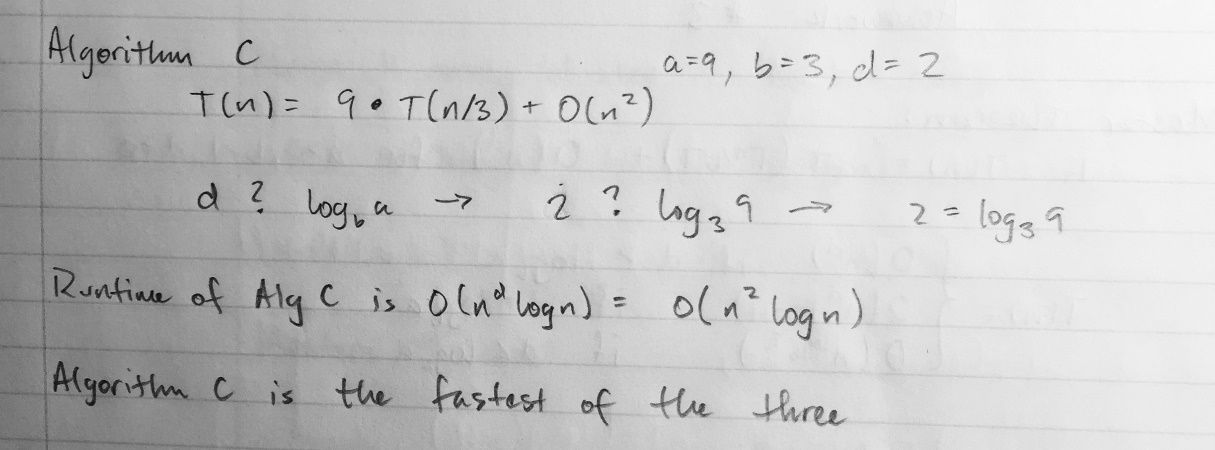 Algorithm C
a=9, b=3, d=2
T(n) = 9 • T(n/3) + O(n²)
d ? log_b a → 2 ? log₃ 9 → 2 = log₃ 9
Runtime of Alg C is O(n^d log n) = O(n² log n)
Algorithm C is the fastest of the three